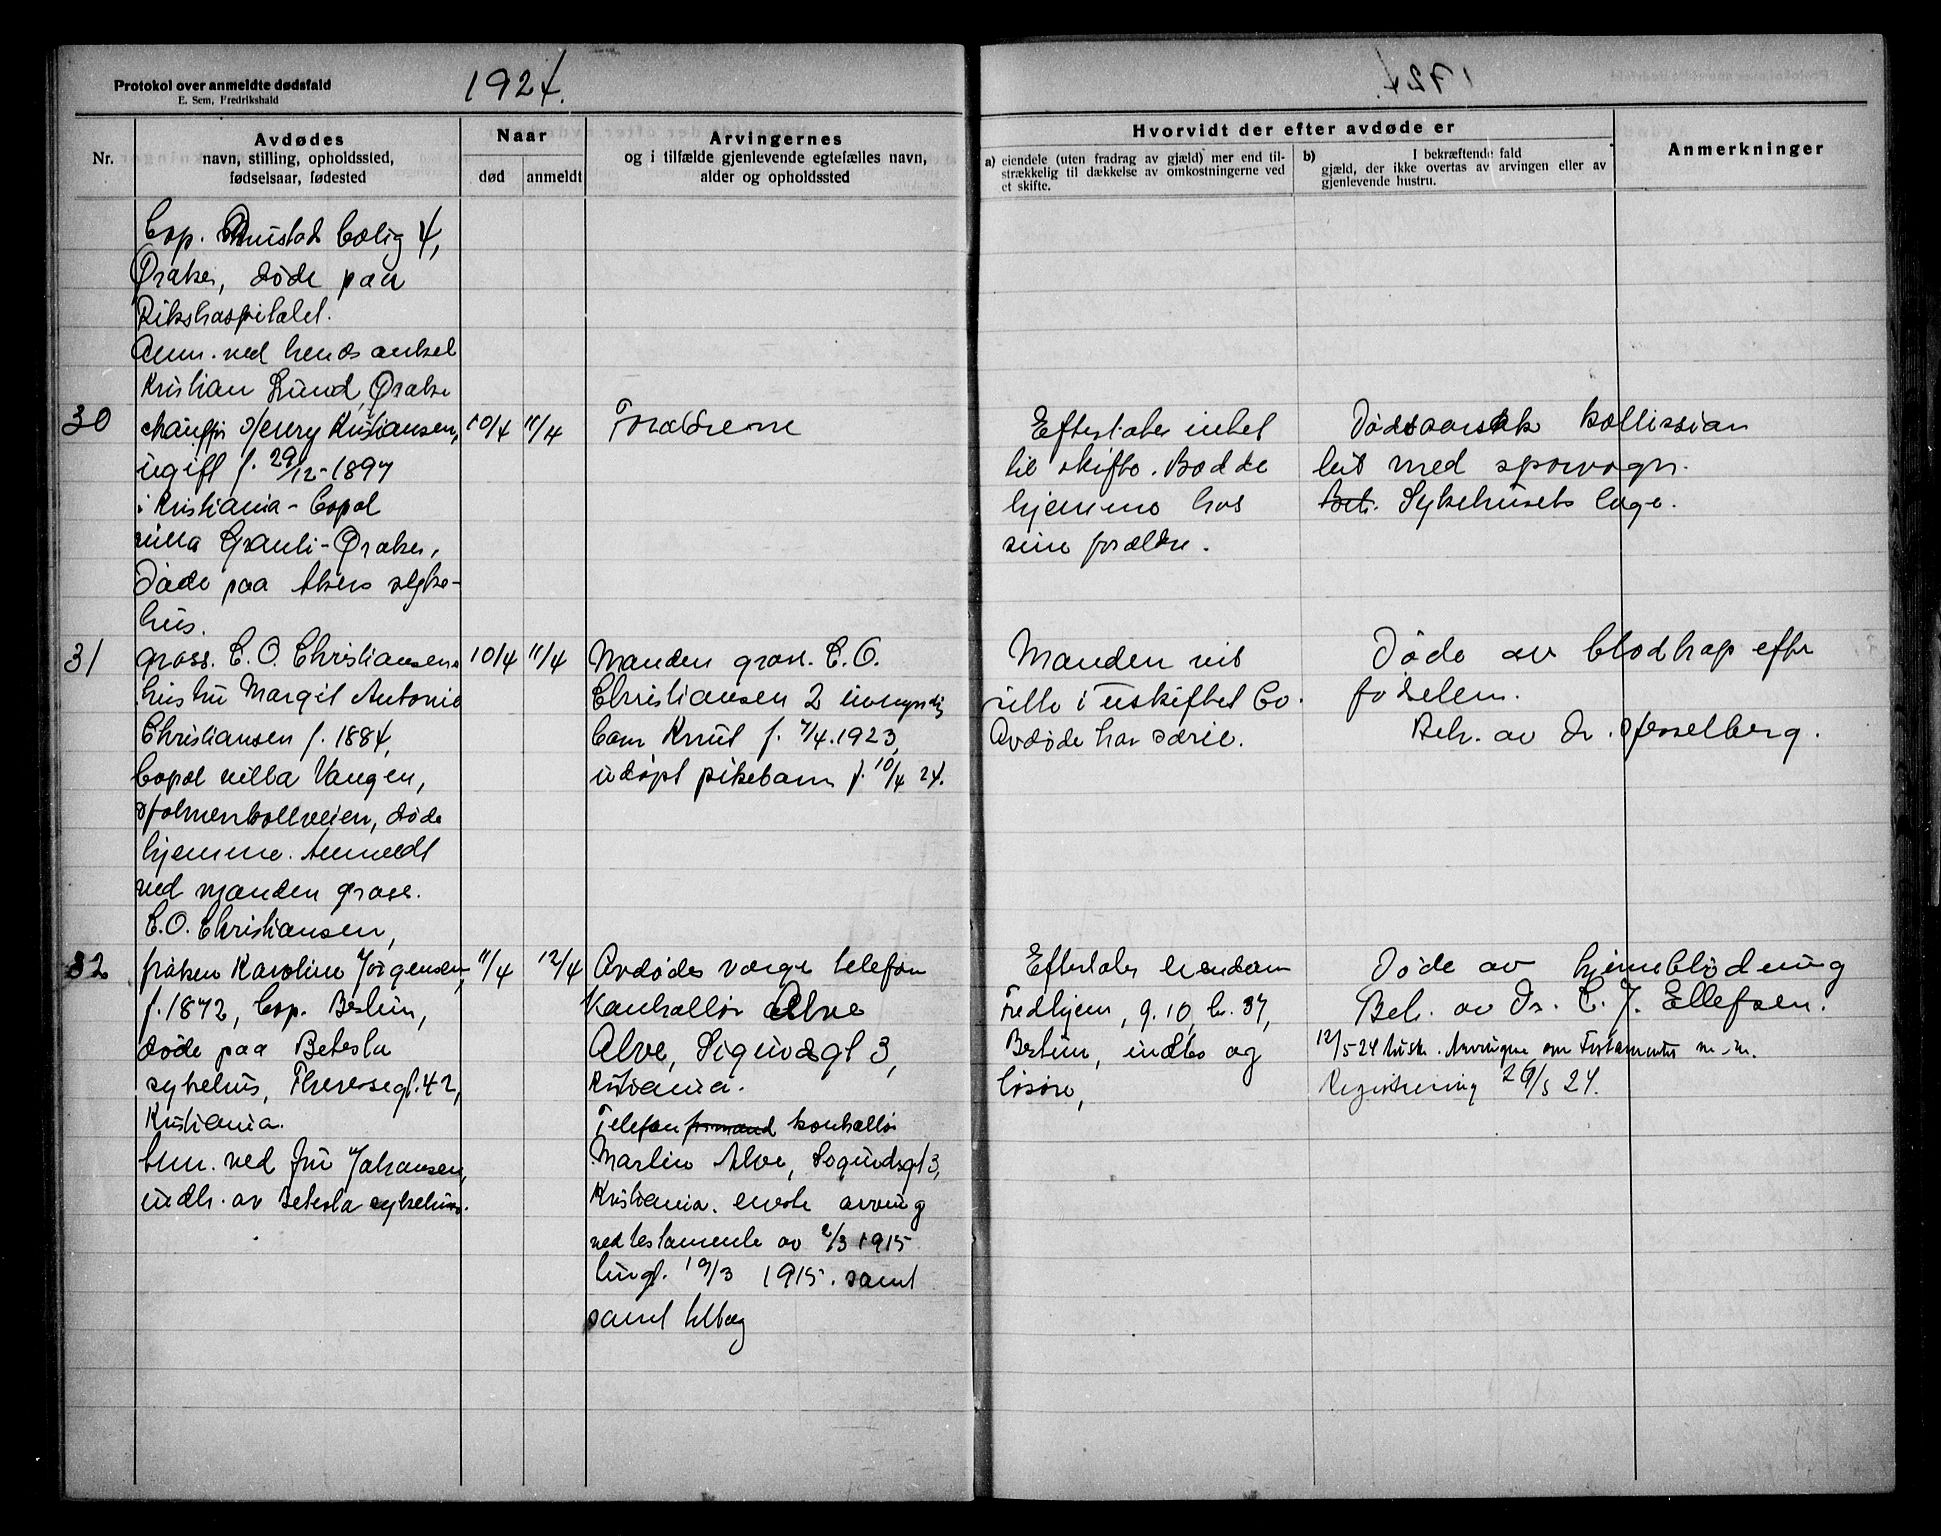 Protokol over anmeldte dødsfald
E. Sem, Fredrikshald
1924.
Nr.
Avdødes
navn, stilling, opholdssted,
fødselsaar, fødested
Naar
død
anmeldt
Arvingernes
og i tilfælde gjenlevende egtefælles navn,
alder og opholdssted
Hvorvidt der efter avdøde er
a) eiendele (uten fradrag av gjæld) mer end til-
strækkelig til dækkelse av omkostningerne ved
et skifte.
b) I bekræftende fald
gjæld, der ikke overtas av arvingen eller av
gjenlevende hustru.
Anmerkninger
bop. bolig 4,
Øraker, døde paa
Rikshospitalet.
Anm. ved hends onkel
Kristian Lund, Øraker
30
chauffør Henry Kristiansen,
ugift f. 29/12-1897
i Kristiania - bopæl
villa Granli - Øraker,
Døde paa Akers syke-
hus.
10/4
11/4
Forældrene
Efterlater intet
til skifte. Bodde
hjemme hos
sine forældre.
Dødsaarsak kollission
med sporvogn.
Beh. Sykehusets læge.
31
gross. C. O. Christiansens
hustru Margit Antonie
Christiansen f. 1884,
bopæl villa Vangen,
Holmenkollveien, døde
hjemme. Anmeldt
ved manden gross.
C.O. Christiansen,
10/4
11/4
Manden gross. C. O.
Christiansen 2 umyndig
barn Knut f. 7/4.1923,
udøpt pikebarn f. 10/4 24.
Manden vil
sitte i uskiftet bo.
Avdøde har særeie.
Døde av blodtap efter
fødselen.
Beh. av Dr. Hesselberg.
32
frøken Karoline Jørgensen,
f. 1872, bop. Bestum,
døde paa Betesta
sykehus, Theresegt. 42,
Kristiania.
Anm. ved fru Johansen,
indh. av Betesta sykehus.
11/4
12/4
Avdødes værge telefon
kontrollør Alve
Alve, Sigurdsgt 3,
Kristiania.
Telefon formand kontrollør
Martin Alve, Sigurdsgt 3,
Kristiania. eneste arving
ved testamente av 2/3 1915
tingl. 19/3 1915. samt
samt tillæg
Efterlater eiendom
Fredhjem, g. 10, br. 37,
Bestum, indbo og
løsøre,
Døde av hjerneblødning
Beh. av Dr. C. J. Ellefsen.
12/5 24 tilsk. Arvingene om Testamentet m. m.
Registrering 29/5 24.